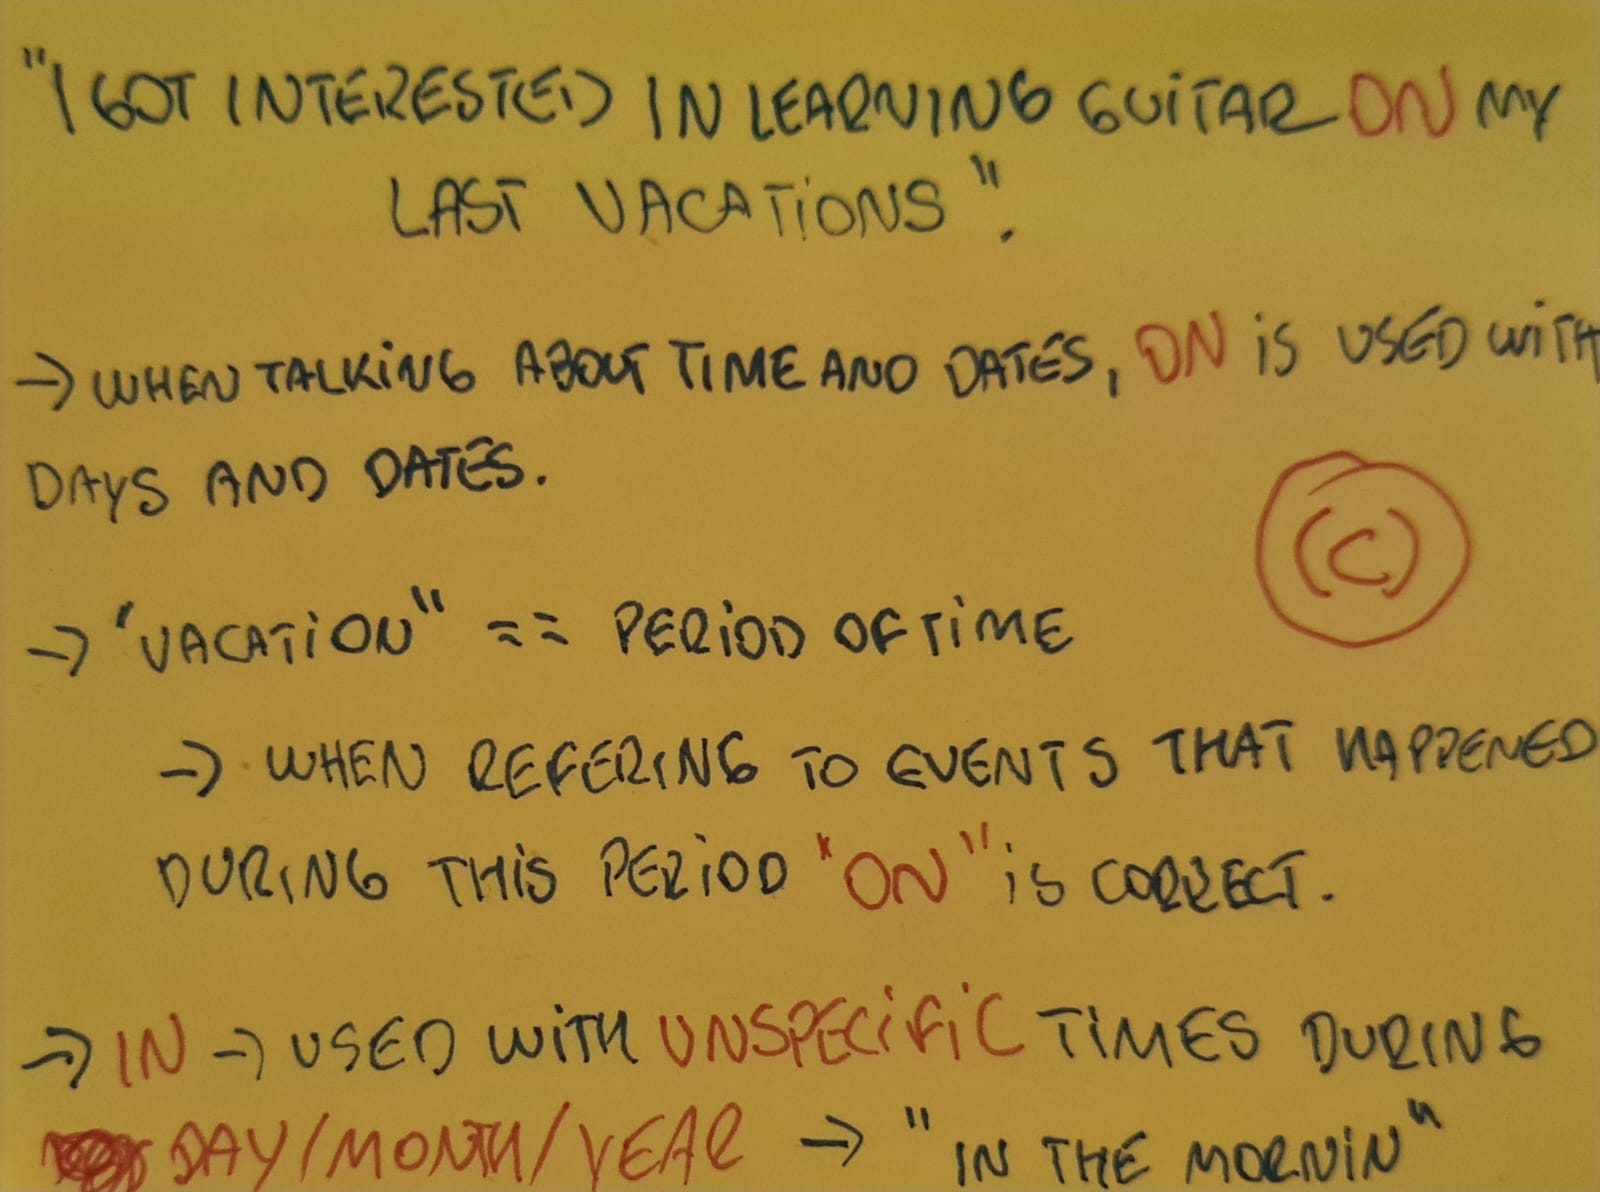 "I GOT INTERESTED IN LEARNING GUITAR ON MY
LAST VACATIONS".
→ WHEN TALKING ABOUT TIME AND DATES, ON IS USED WITH
DAYS AND DATES.
(C)
→ "VACATION" == PERIOD OF TIME
→ WHEN REFERING TO EVENTS THAT HAPPENED
DURING THIS PERIOD "ON" IS CORRECT.
→ IN → USED WITH UNSPECIFIC TIMES DURING
DAY/MONTH/YEAR → "IN THE MORNIN"